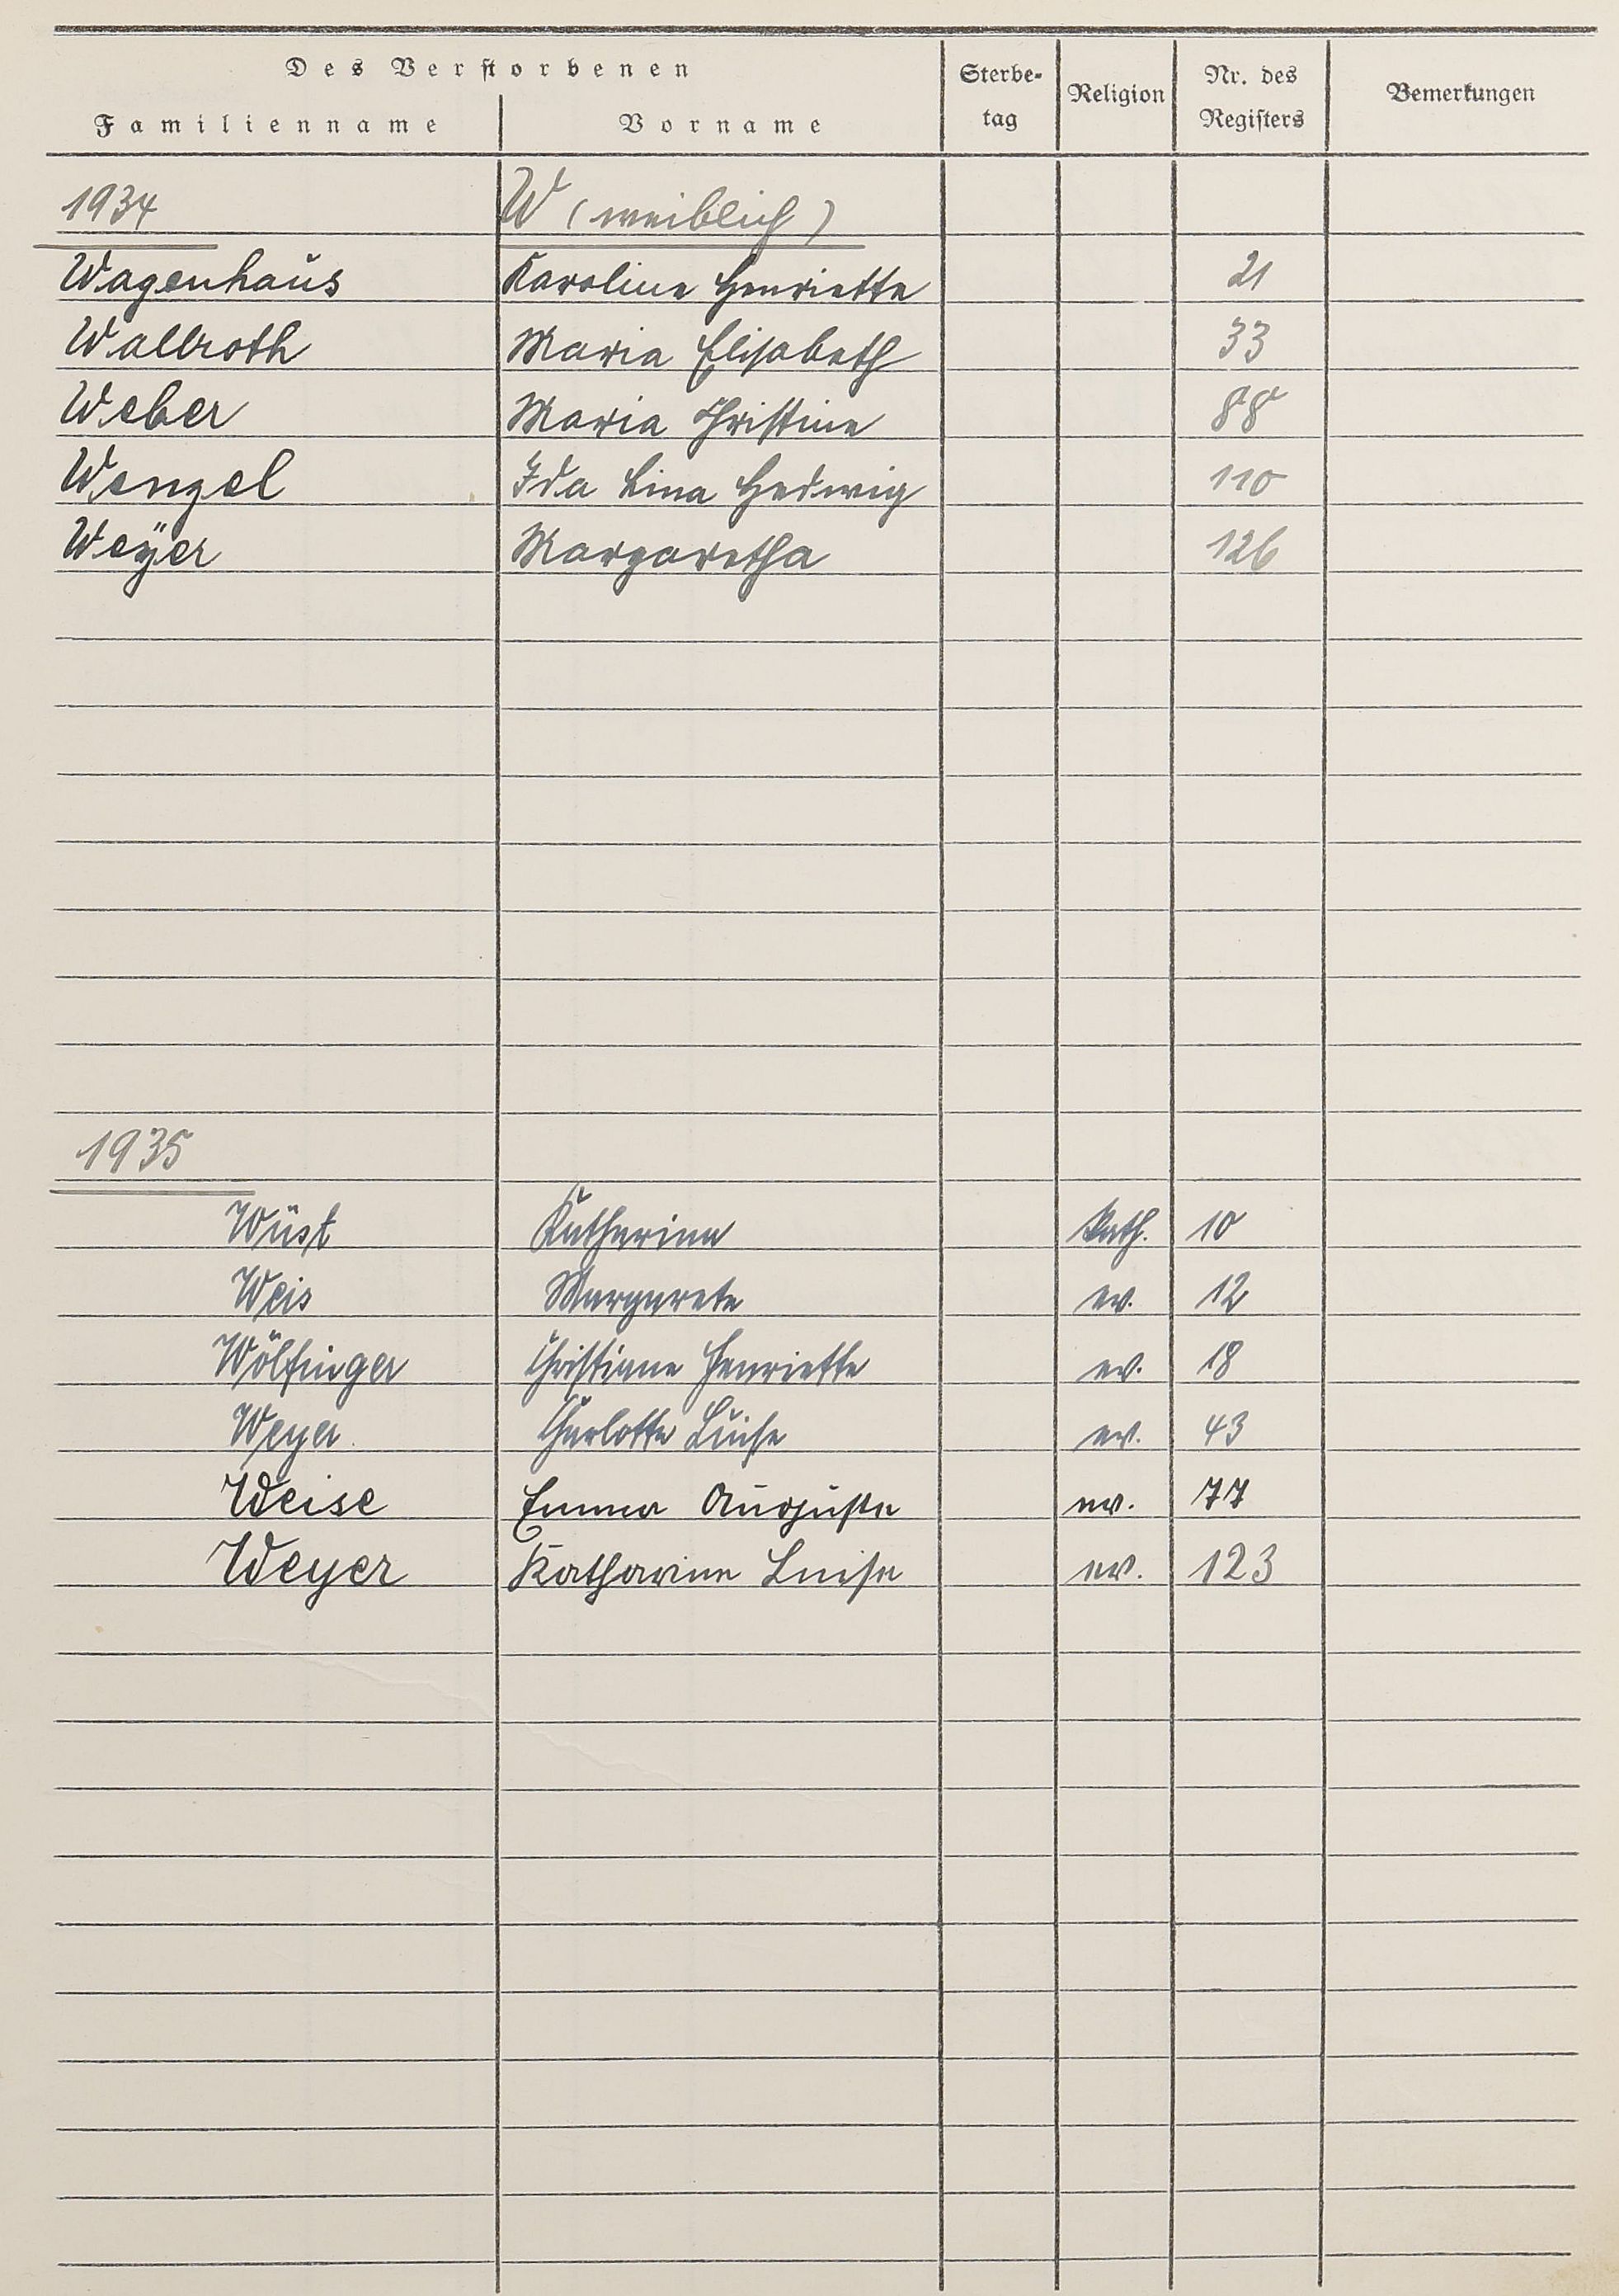 Des Verstorbenen
Familienname Vorname Sterbe-tag Religion Nr. des Registers Bemerkungen
1934 W (weiblich)
Wagenhaus Karoline Henriette 21
Wallroth Maria Elisabeth 33
Weber Maria Christine 88
Wenzel Ida Lina Hedwig 110
Weÿer Margaretha 126
1935
Wüst Katharina Kath. 10
Weis Margarete ev. 12
Wölfinger Christiane Henriette ev. 18
Weyer Charlotte Luise ev. 43
Weise Emma Auguste ev. 77
Weyer Katharine Luise ev. 123